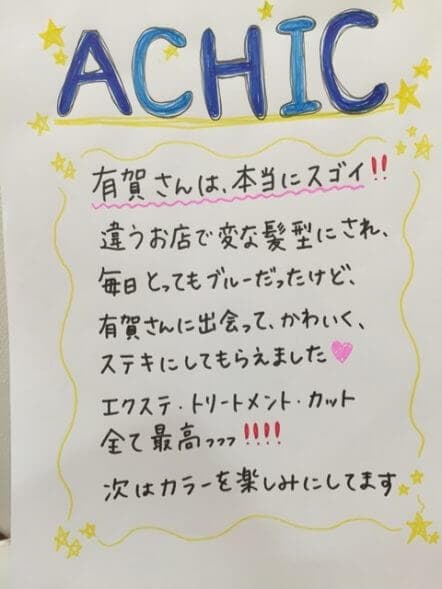 ACHIC
有賀さんは、本当にスゴイ!!
違うお店で変な髪型にされ、
毎日とってもブルーだったけど、
有賀さんに出会って、かわいく、
ステキにしてもらえました♥
エクステ・トリートメント・カット
全て最高ッッッ!!!!
次はカラーを楽しみにしてます